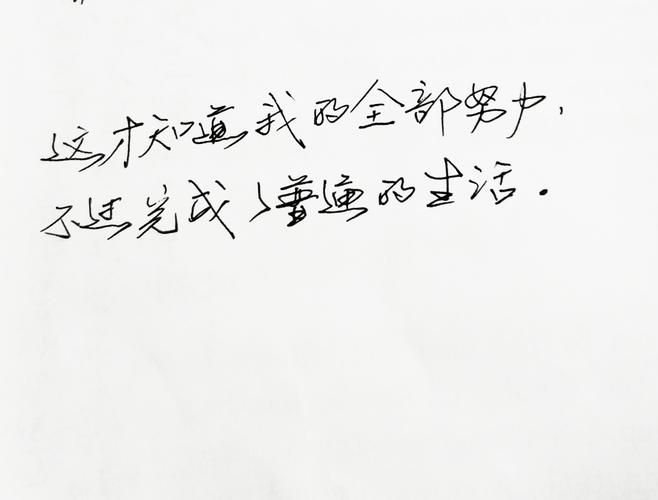 这才知道我的全部努力，
不过完成了普通的生活。